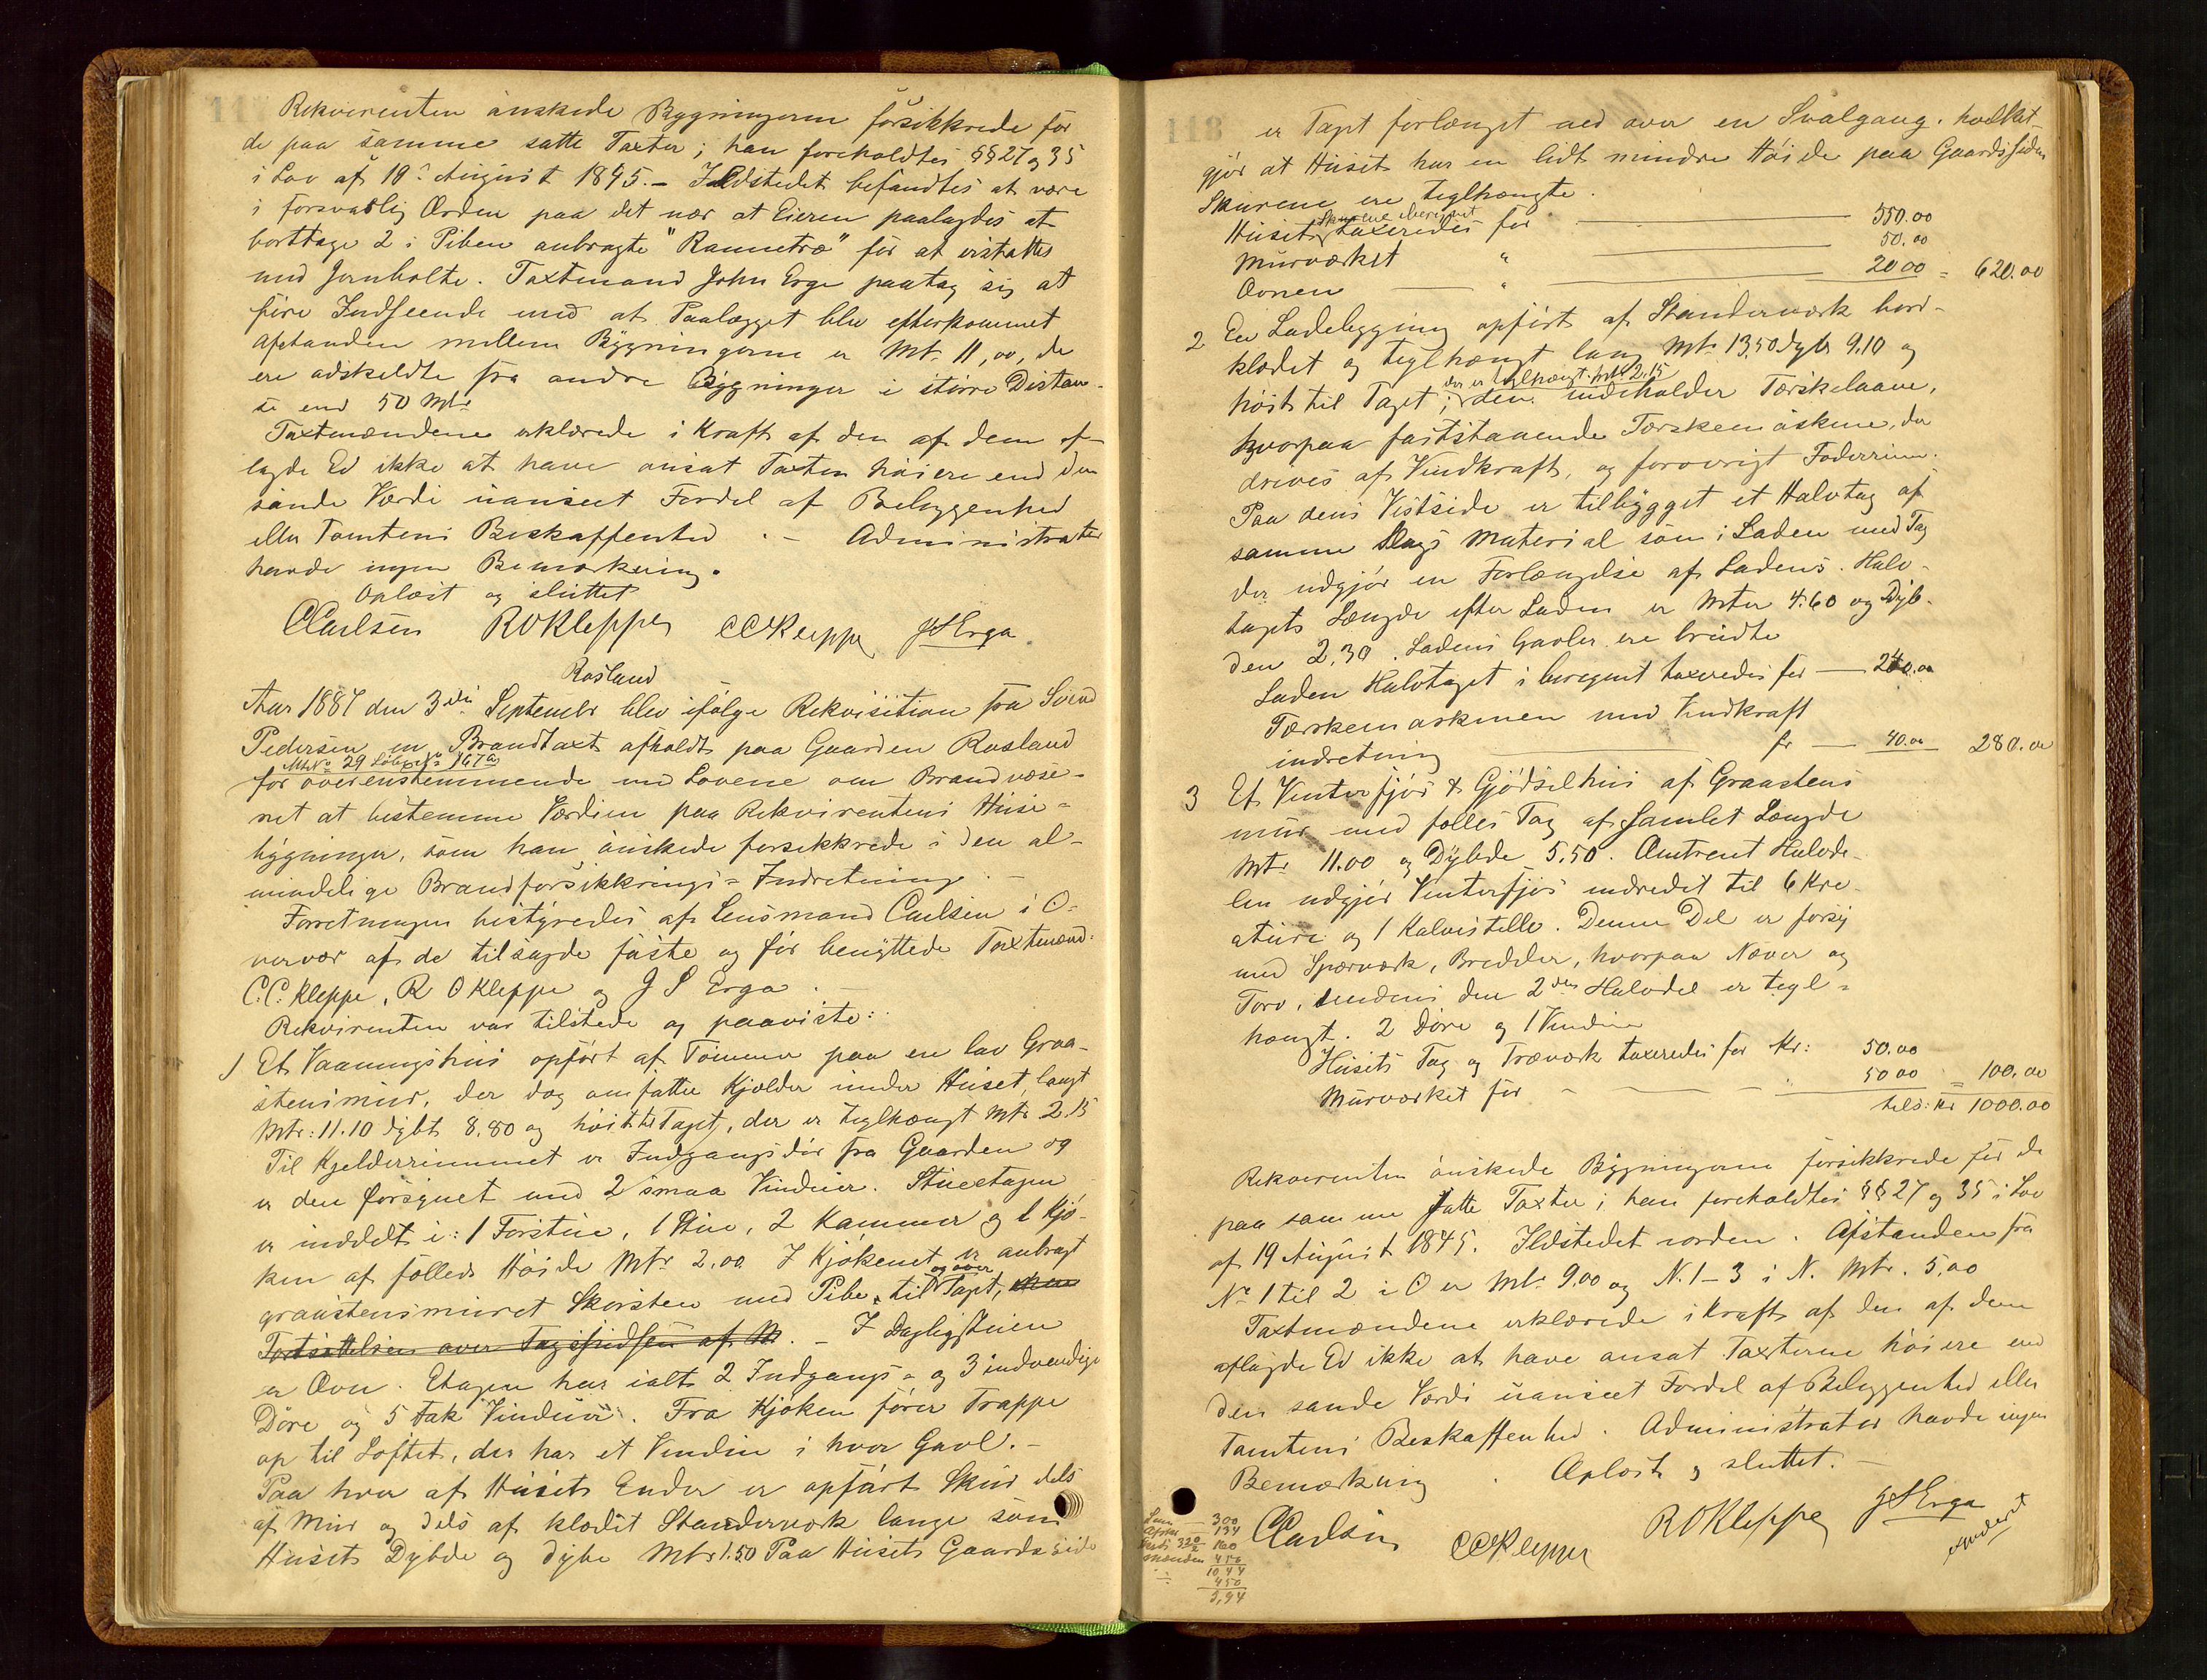 Rekvirenten ønskede Bygningerne forsikkrede for
de paa samme satte Taxter; han foreholdtes §§ 27 og 35
i Lov af 19de August 1845. - Ildstedet befandtes at være
i forsvarlig Orden paa det nær at Eieren paalagdes at
borttage 2 i Piben anbragte "Rammetræ" for at erstattes
med Jernbolte. Taxtmand John Erga paatog sig at
føre Indseende med at Paalægget blev efterkommet
Afstanden mellem Bygningerne er Mtr. 11,00, de
ere adskildte fra andre Bygninger i større Distan-
se end 50 Mtr
Taxtmændene erklærede i Kraft af den af dem af-
lagde Ed ikke at have ansat Taxten høiere end den
sande Værdi uanseet Fordel af Beliggenhed
eller Tomtens Beskaffenhed. - Administrator
havde ingen Bemærkning.
Oplæst og sluttet
CCarlsen ROKleppe CCKleppe JSErga
Rosland
Aar 1887 den 3die September blev ifølge Rekvisition fra Svend
Pedersen en Brandtaxt afholdt paa Gaarden Rosland
Mt No 29 Løbe No 167a
for overenstemmende med Lovene om Brandvæse-
net at bestemme Værdien paa Rekvirentens Huse-
bygninger, som han ønskede forsikkrede i den al-
mindelige Brandforsikkrings-Indretning. -
Forretningen bestyredes af Lensmand Carlsen i O-
vervær af de tilsagde faste og før benyttede Taxtmænd:
C.C. Kleppe, R O Kleppe og J S Erga. -
Rekvirenten var tilstede og paaviste:
1 Et Vaaningshus opført af Tømmer paa en lav Graa-
stensmur, der dog omfatter Kjælder under Huset, langt
Mtr: 11.10 dybt 8.80 og høit til Taget, der er teglhængt Mtr 2.15
Til Kjelderrummet er Indgangsdør fra Gaarden og
er den forsynet med 2 smaa Vinduer. Stueetagen
er inddelt i: 1 Forstue, 1 Stue, 2 Kammer og 1 Kjø-
ken af fælleds Høide Mtr 2.00 I Kjøkenet er anbragt
graastensmuret Skorsten med Pibe til og over Taget, men
Fortsættelsen over Tagspidsen af M. - I Dagligstuen
er Ovn. Etagen har ialt 2 Indgangs- og 3 indvendige
Døre og 5 Fak Vinduer. Fra Kjøken fører Trappe
op til Loftet, der har et Vindu i hver Gavl. -
Paa hver af Husets Ender er opført Skur dels
af Mur og dels af klædt Standerværk lange som
Husets Dybde og dybe Mtr 1.50 Paa Husets Gaardsside
118
er Taget forlænget ned over en Svalgang. hvilket
gjør at Huset har en lidt mindre Høide paa Gaardssiden
Skurene ere teglhængte.
Huset Skurene iberegnet taxeredes for 550.00
Murværket " 50.00
Ovnen " 20 00 = 620.00
2 En Ladebygging opført af Standerværk bord-
klædet og teglhængt lang Mtr 13,50 dyb 9.10 og
høit til Taget; der er teglhængt Mtr 2.15 den indeholder Tærskelaave,
hvorpaa faststaaende Tærskemaskine, der
drives af Vindkraft, og forøvrigt Foderrum.
Paa dens Vestside er tilbygget et Halvtag af
samme Slags Material som i Laden med Tag
der udgjør en Forlængelse af Ladens. Halv-
tagets Længde efter Laden er Mter 4.60 og Dyb-
den 2,30. Ladens Gavler ere brudte
Laden Halvtaget iberegnet taxeredes for 240.00
Tærskemaskinen med Vindkraft
indretning for 40.00 280.00
3 Et Vinterfjøs & Gjødselhus af Graastens
mur med fælles Tag af samlet Længde
Mtr 11.00 og Dybde 5.50. Omtrent Halvde-
len udgjør Vinterfjøs indredet til 6 Kre-
ature og 1 Kalvestelle. Denne Del er forsy
med Sperværk, Bredder, hvorpaa Næver og
Torv, medens den 2den Halvdel er tegl-
hængt. 2 Døre og 1 Vindue
Husets Tag og Træværk taxeredes for Kr: 50.00
Murværket for 50 00 = 100.00
tils: Kr 1000.00
Rekvirenten ønskede Bygningerne forsikkrede for de
paa samme satte Taxter; han foreholdtes §§ 27 og 35 i Lov
af 19 August 1845. Ildstedet iorden. Afstanden fra
No 1 til 2 i O er Mtr 9.00 og N. 1-3 i N. Mtr. 5.00
Taxtmændene erklærede i kraft af den af dem
aflagde Ed ikke at have ansat Taxterne høiere end
den sande Værdi uanseet Fordel af Beliggenhed eller
Tomtens Beskaffenhed. Administrator havde ingen
Bemærkning. Oplæst og sluttet. -
CCarlsen CCKleppe ROKleppe JSErga
300
134
160
450
10,44
450
5,94